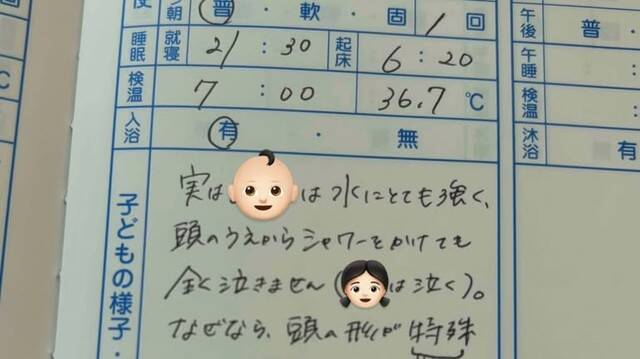 朝 普・軟・固 1回
睡眠 就寝 21:30 起床 6:20
検温 7:00 36.7℃
入浴 有・無
子どもの様子・
実は は水にとても強く、
頭のうえからシャワーをかけても
全く泣きません( は泣く)。
なぜなら、頭の形が特殊
午後 普・
午睡
検温
沐浴 有